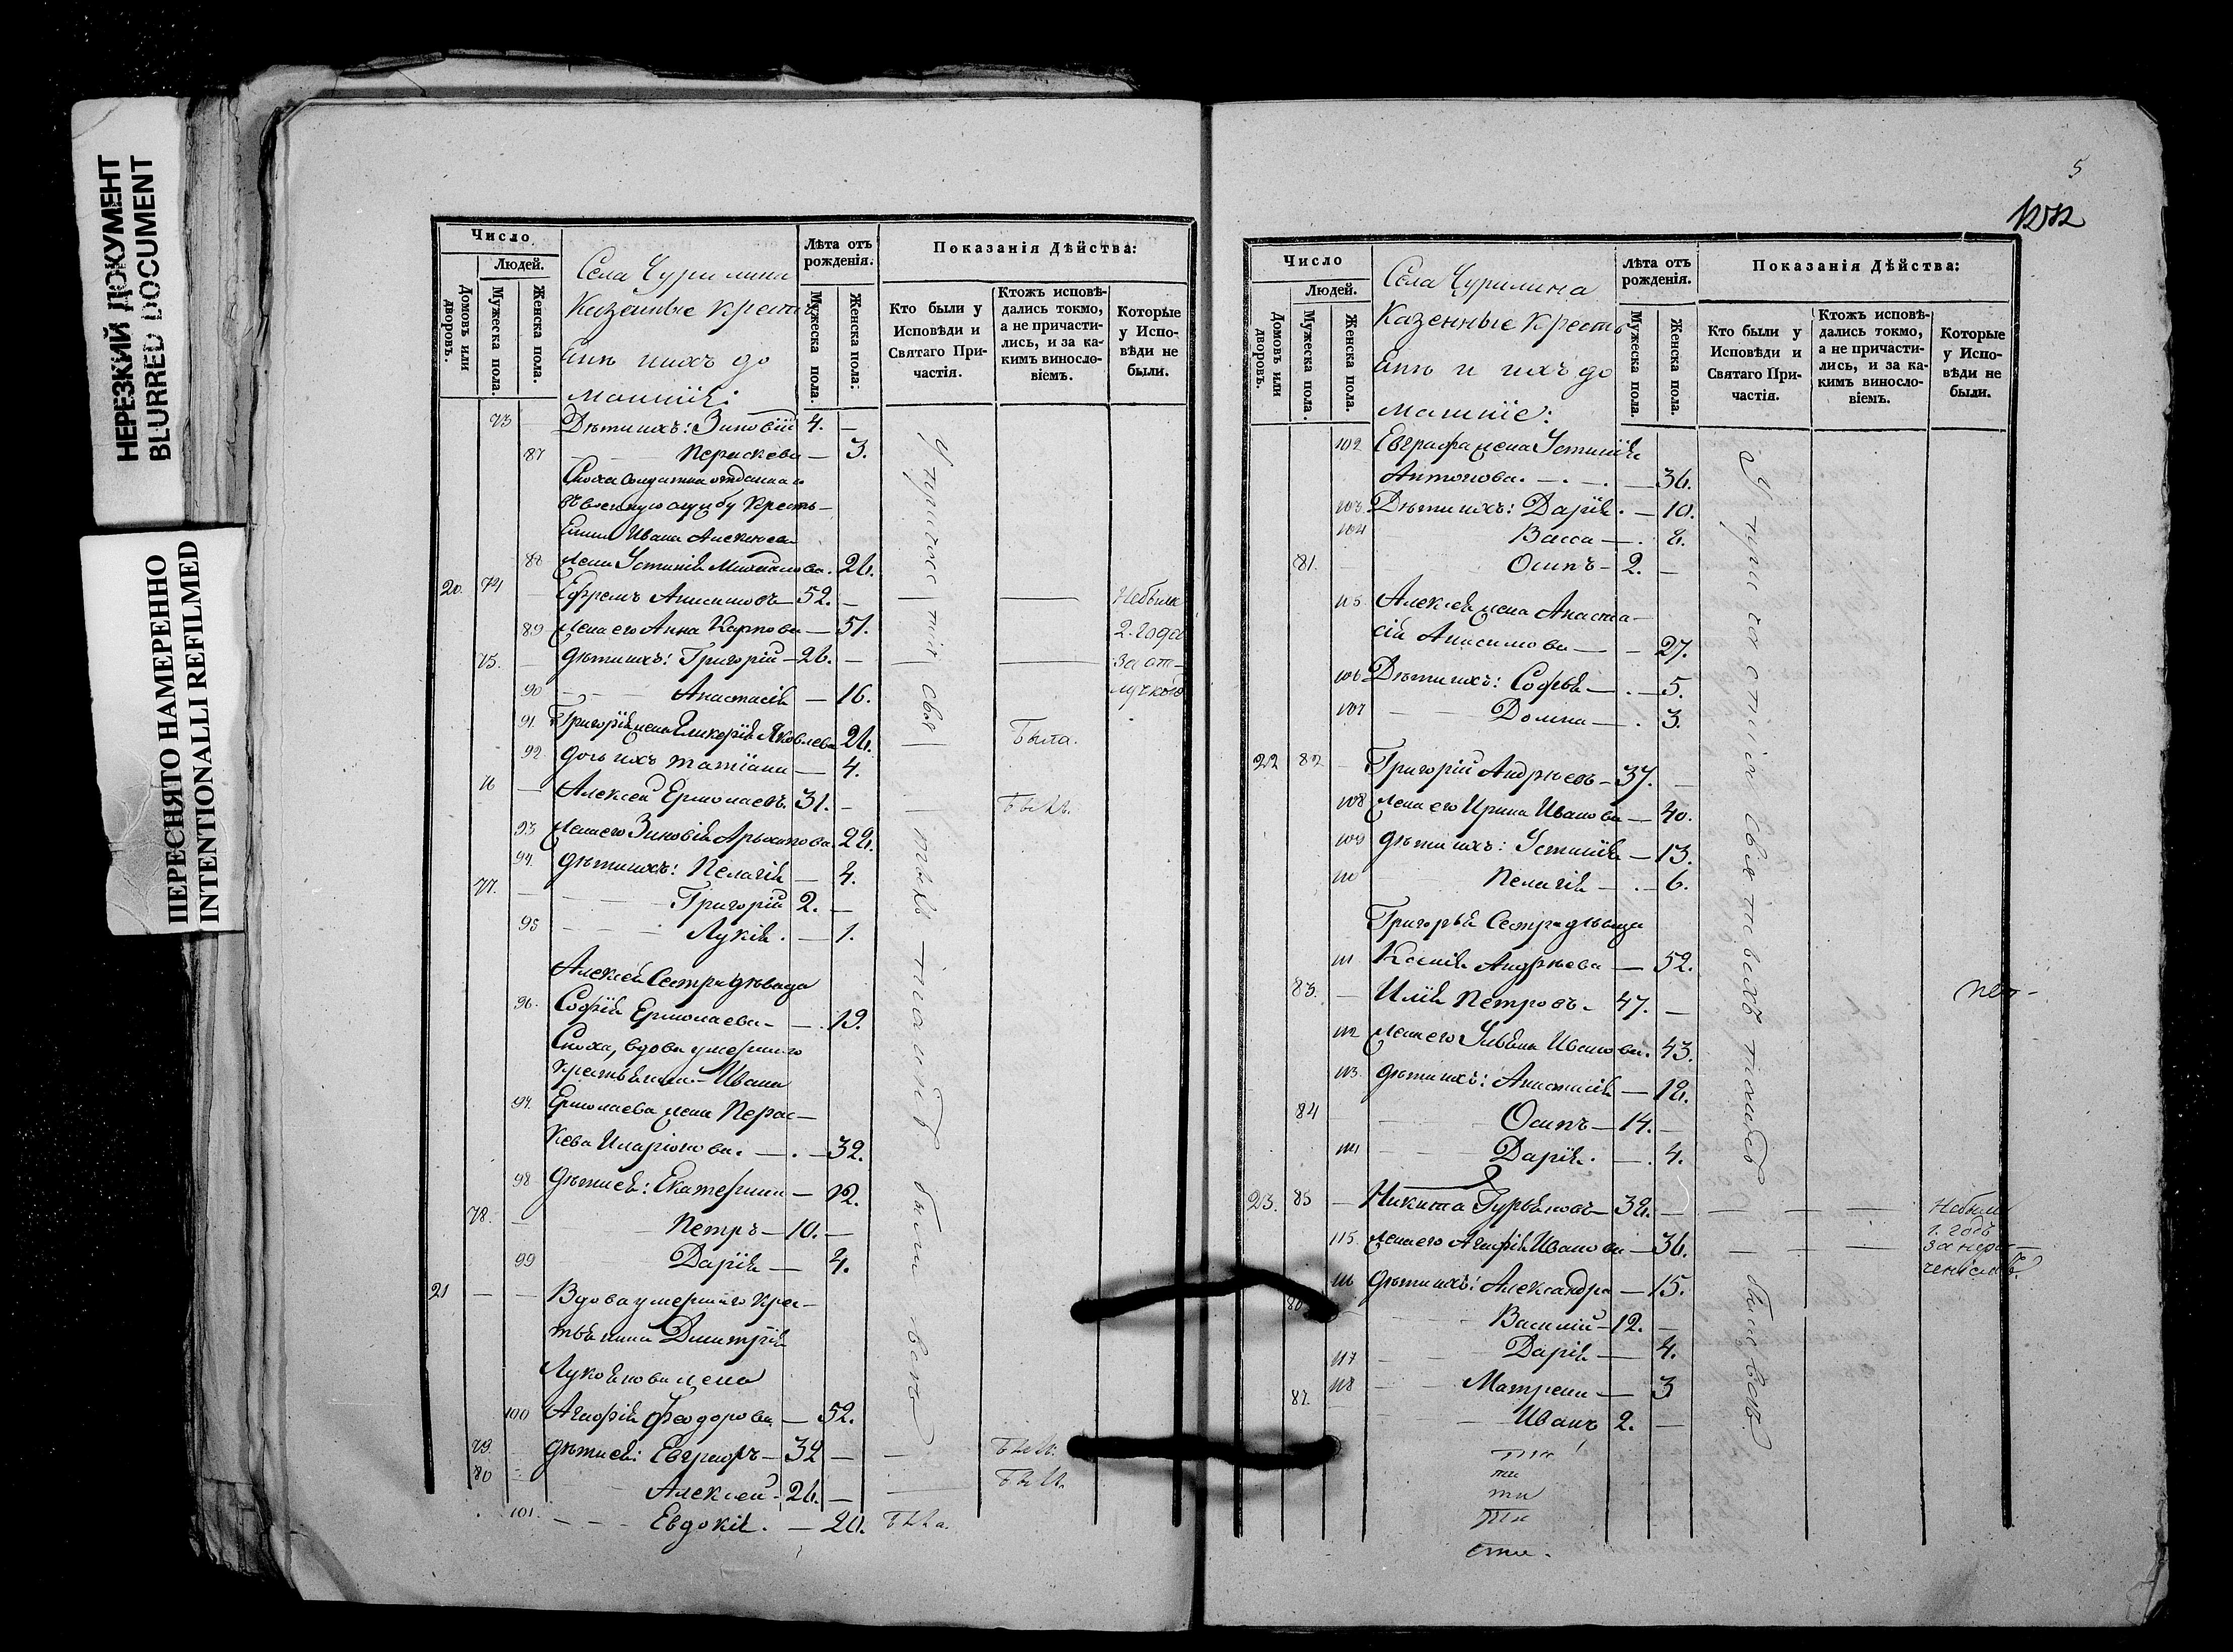 НЕРЕЗКИЙ ДОКУМЕНТ
BLURRED DOCUMENT
ПЕРЕСНЯТО НАМЕРЕННО
INTENTIONALLI REFILMED
Число
Людей.
Домовъ или дворовъ.
Мужеска пола.
Женска пола.
Села Чурилина
Казенные кресть
яне и ихъ до
машніе:
Лѣта отъ рожденія.
Мужеска пола.
Женска пола.
Показанія Дѣйства:
Кто были у Исповѣди и Святаго Причастія.
Ктожъ исповѣдались токмо, а не причастились, и за какимъ винословіемъ.
Которые у Исповѣди не были.
73 Дѣти ихъ: Зиновій 4. —
87 Параскева — 3.
Сноха солдатка отданнаго
въ военную службу кресть-
янина Ивана Алексѣева
88 жена Устинія Михайлова. 26.
20. 74 Ефремъ Анисимовъ — 52. — Небыли
89 Жена его Анна Карпова — 51. 2. года
75. дѣти ихъ: Григорій — 26. — за от-
90 Анастасія — 16. лучкою
91. Григорія жена Гликерія Яковлева 26. Была.
92. дочь ихъ Татіана — 4.
76 — Алексей Ермолаевъ 31. — Былъ.
93 Жена его Зиновія Архипова. 22.
94. дѣти ихъ: Пелагія — 4.
77. Григорій 2. —
95 Лукія. — 1.
Алексея Сестра дѣвица
96. Софія Ермолаева — 19.
Сноха, вдова умершаго
крестьянина Ивана
97. Ермолаева жена Парас-
кева Иларіонова. — 32.
98 дѣти ея: Екатерина — 12.
78. — Петръ — 10. —
99 Дарія — 4.
21 — — Вдова умершаго крес-
тьянина Димитрія
Лукоянова жена
100 Агафія Феодорова — 52.
79. дѣти ея: Евграфъ — 32 — Былъ.
80 Алексей — 26. — Былъ.
101. Евдокія. — 20. Была.
У причастія святыхъ таинъ были всѣ
5
Число
Людей.
Домовъ или дворовъ.
Мужеска пола.
Женска пола.
Села Чурилина
Казенные кресть
яне и ихъ до
машніе:
Лѣта отъ рожденія.
Мужеска пола.
Женска пола.
Показанія Дѣйства:
Кто были у Исповѣди и Святаго Причастія.
Ктожъ исповѣдались токмо, а не причастились, и за какимъ винословіемъ.
Которые у Исповѣди не были.
102 Евграфа жена Устинія
Антонова. — 36.
103. Дѣти ихъ: Дарія. — 10.
104 Васса — 8.
81. Осипъ — 2. —
105 Алексея жена Анаста-
сія Анисимова — 27.
106 Дѣти ихъ: Софья — 5.
107 Домна — 3.
22 82 — Григорій Андреевъ — 37. —
108 Жена его Ирина Иванова — 40.
109 дѣти ихъ: Устинія — 13.
110 Пелагія — 6.
Григорья Сестра дѣвица
111 Ксенія Андреева — 52.
83. — Илія Петровъ. 47. —
112 Жена его Ульяна Иванова. 43.
113. дѣти ихъ: Анастасія — 18.
84 Осипъ — 14. —
114 Дарія. — 4.
23. 85 — Никита Гурьяновъ — 38. — Небыли
1. годъ
115. Жена его Агафія Иванова — 36.
116 дѣти ихъ: Александра — 15.
86 Василій — 12. —
117 Дарія — 4.
118 Матрена — 3
87. Иванъ 2. —